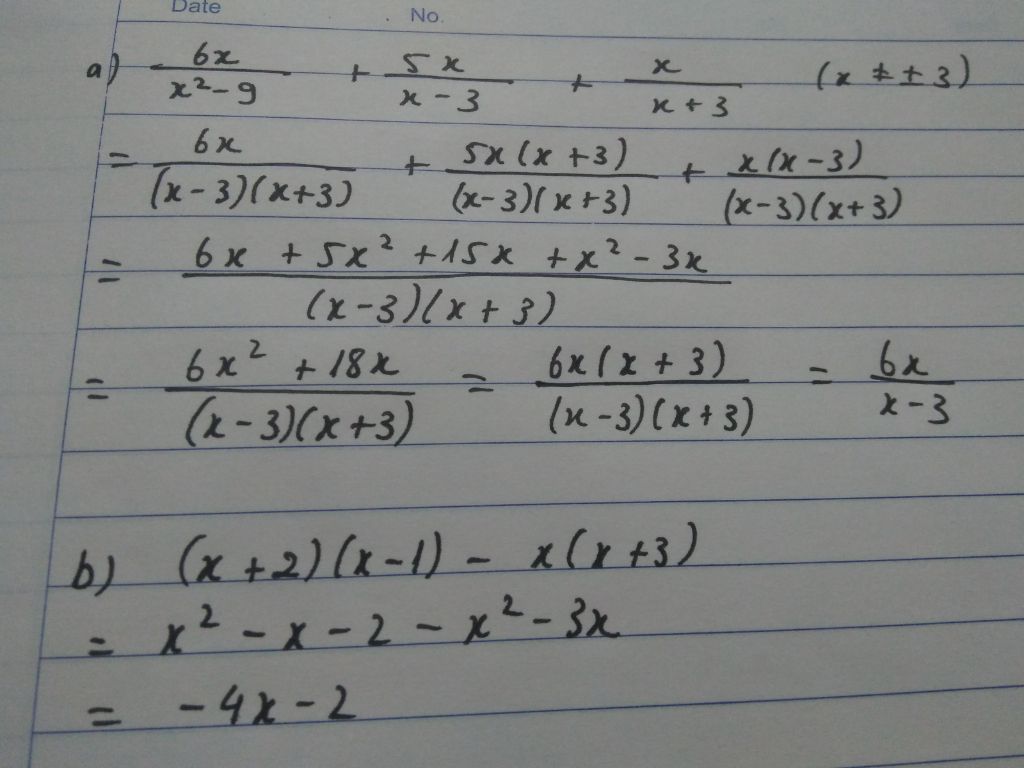 Date No.
a) 6x/(x²-9) + 5x/(x-3) + x/(x+3) (x ≠ ±3)
= 6x/((x-3)(x+3)) + 5x(x+3)/((x-3)(x+3)) + x(x-3)/((x-3)(x+3))
= (6x + 5x² + 15x + x² - 3x)/((x-3)(x+3))
= (6x² + 18x)/((x-3)(x+3)) = 6x(x+3)/((x-3)(x+3)) = 6x/(x-3)
b) (x+2)(x-1) - x(x+3)
= x² - x - 2 - x² - 3x
= -4x - 2